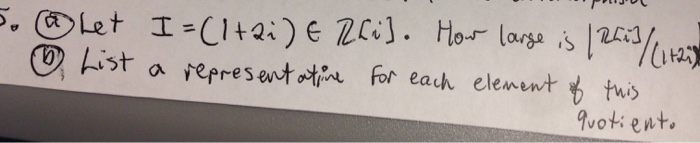 5. (a) Let I = (1+2i) ∈ ℤ[i]. How large is |ℤ[i]/(1+2i)|
(b) List a representative for each element of this
quotient.